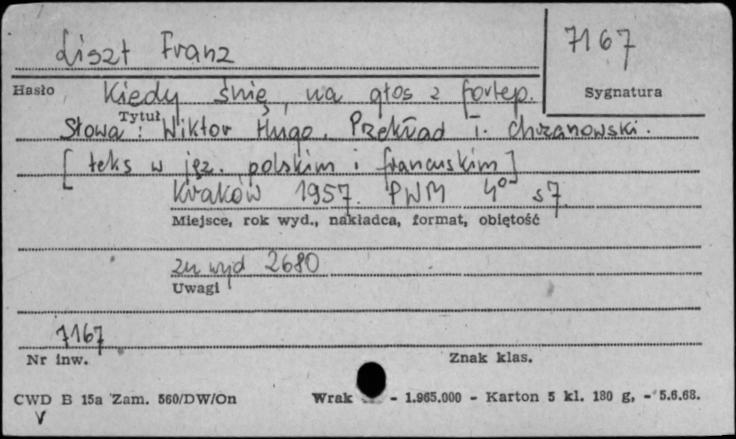 Liszt Franz
7167
Hasło
Kiedy śnię, na głos z fortep.
Sygnatura
Tytuł
Słowa: Wiktor Hugo. Przekład T. Chrzanowski.
[teks w jęz. polskim i francuskim]
Kraków 1957. PWM 4° s7
Miejsce, rok wyd., nakładca, format, objętość
zn wyd 2680
Uwagi
7167
Nr inw.
Znak klas.
CWD B 15a Zam. 560/DW/On
Wrak - 1.965.000 - Karton 5 kl. 180 g, - 5.6.68.
V